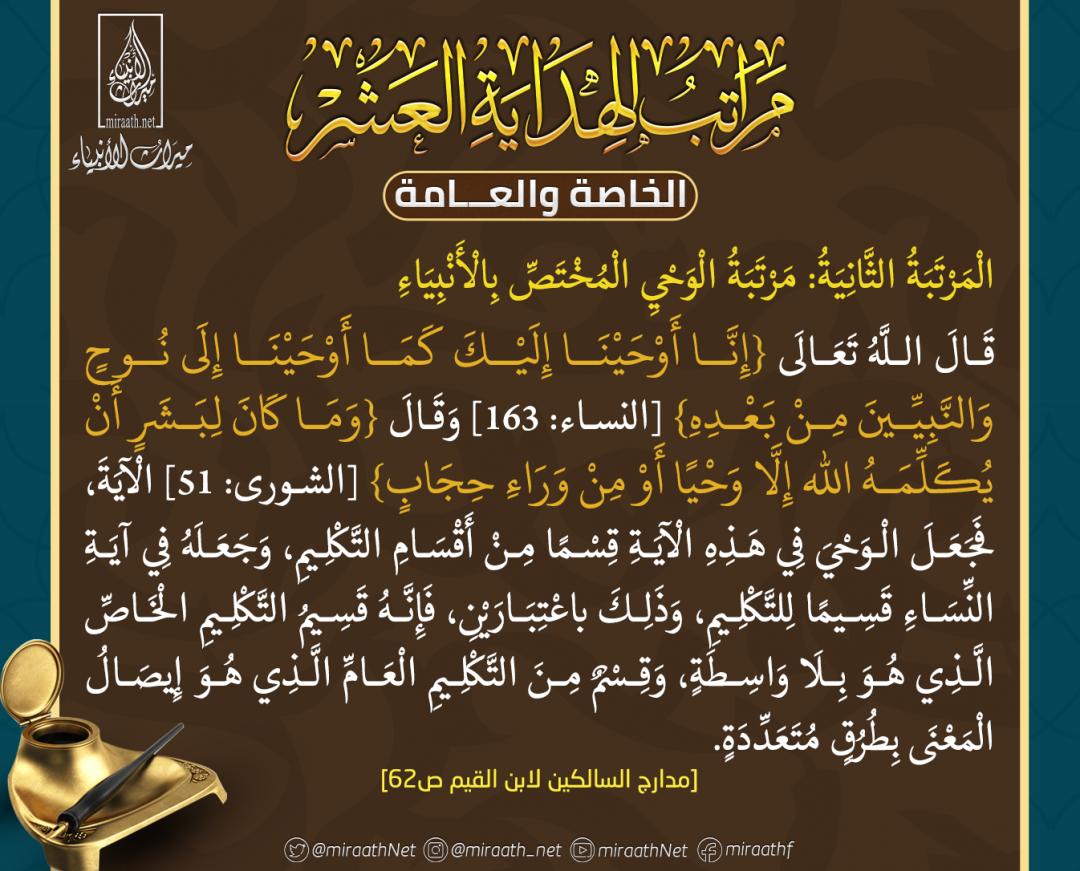 ميراث الأنبياء
miraath.net
ميراث الأنبياء
مَرَاتِبُ الهِدَايَةِ العَشْر
الخاصة والعـــامة
الْمَرْتَبَةُ الثَّانِيَةُ: مَرْتَبَةُ الْوَحْيِ الْمُخْتَصِّ بِالْأَنْبِيَاءِ
قَـالَ اللـهُ تَعَـالَى {إِنَّـا أَوْحَيْنَـا إِلَيْـكَ كَمَـا أَوْحَيْنَـا إِلَى نُـوحٍ
وَالنَّبِيِّـينَ مِـنْ بَعْـدِهِ} [النساء: 163] وَقَالَ {وَمَـا كَانَ لِبَـشَرٍ أَنْ
يُكَلِّمَـهُ الله إِلَّا وَحْيًا أَوْ مِنْ وَرَاءِ حِجَابٍ} [الشورى: 51] الْآيَةَ،
فَجَعَـلَ الْوَحْيَ فِي هَـذِهِ الْآيَـةِ قِسْمًا مِـنْ أَقْسَـامِ التَّكْلِـيمِ، وَجَعَـلَهُ فِي آيَـةِ
النِّسَـاءِ قَسِـيمًا لِلتَّكْلِـيمِ، وَذَلِـكَ باعْتِبَـارَيْنِ، فَإِنَّـهُ قَسِيمُ التَّكْلِـيمِ الْخَاصِّ
الَّـذِي هُـوَ بِـلَا وَاسِـطَةٍ، وَقِسْمٌ مِـنَ التَّكْلِـيمِ الْعَـامِّ الَّـذِي هُـوَ إِيصَـالُ
الْمَعْنَى بِطُرُقٍ مُتَعَدِّدَةٍ.
[مدارج السالكين لابن القيم ص62]
@miraathNet @miraath_net miraathNet miraathf